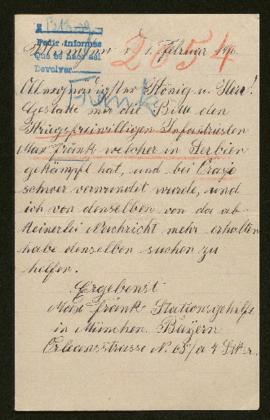 Pedir informes
Que es hace del
Devolver
2654
Frank
München, d. 1. Februar 191
Allergnädigster König u. Herr!
Gestatte mir die Bitte den
Kriegsfreiwilligen Infantristen
Max Fränk welcher in Serbien
gekämpft hat, und bei
schwer verwundet wurde, und
ich von denselben von da ab
keinerlei Nachricht mehr erhalten
habe denselben suchen zu
helfen.
Ergebenst
Max Fränk Stationsgehilfe
in München Bayern
Orleansstrasse N. 65/a 4 St. r.